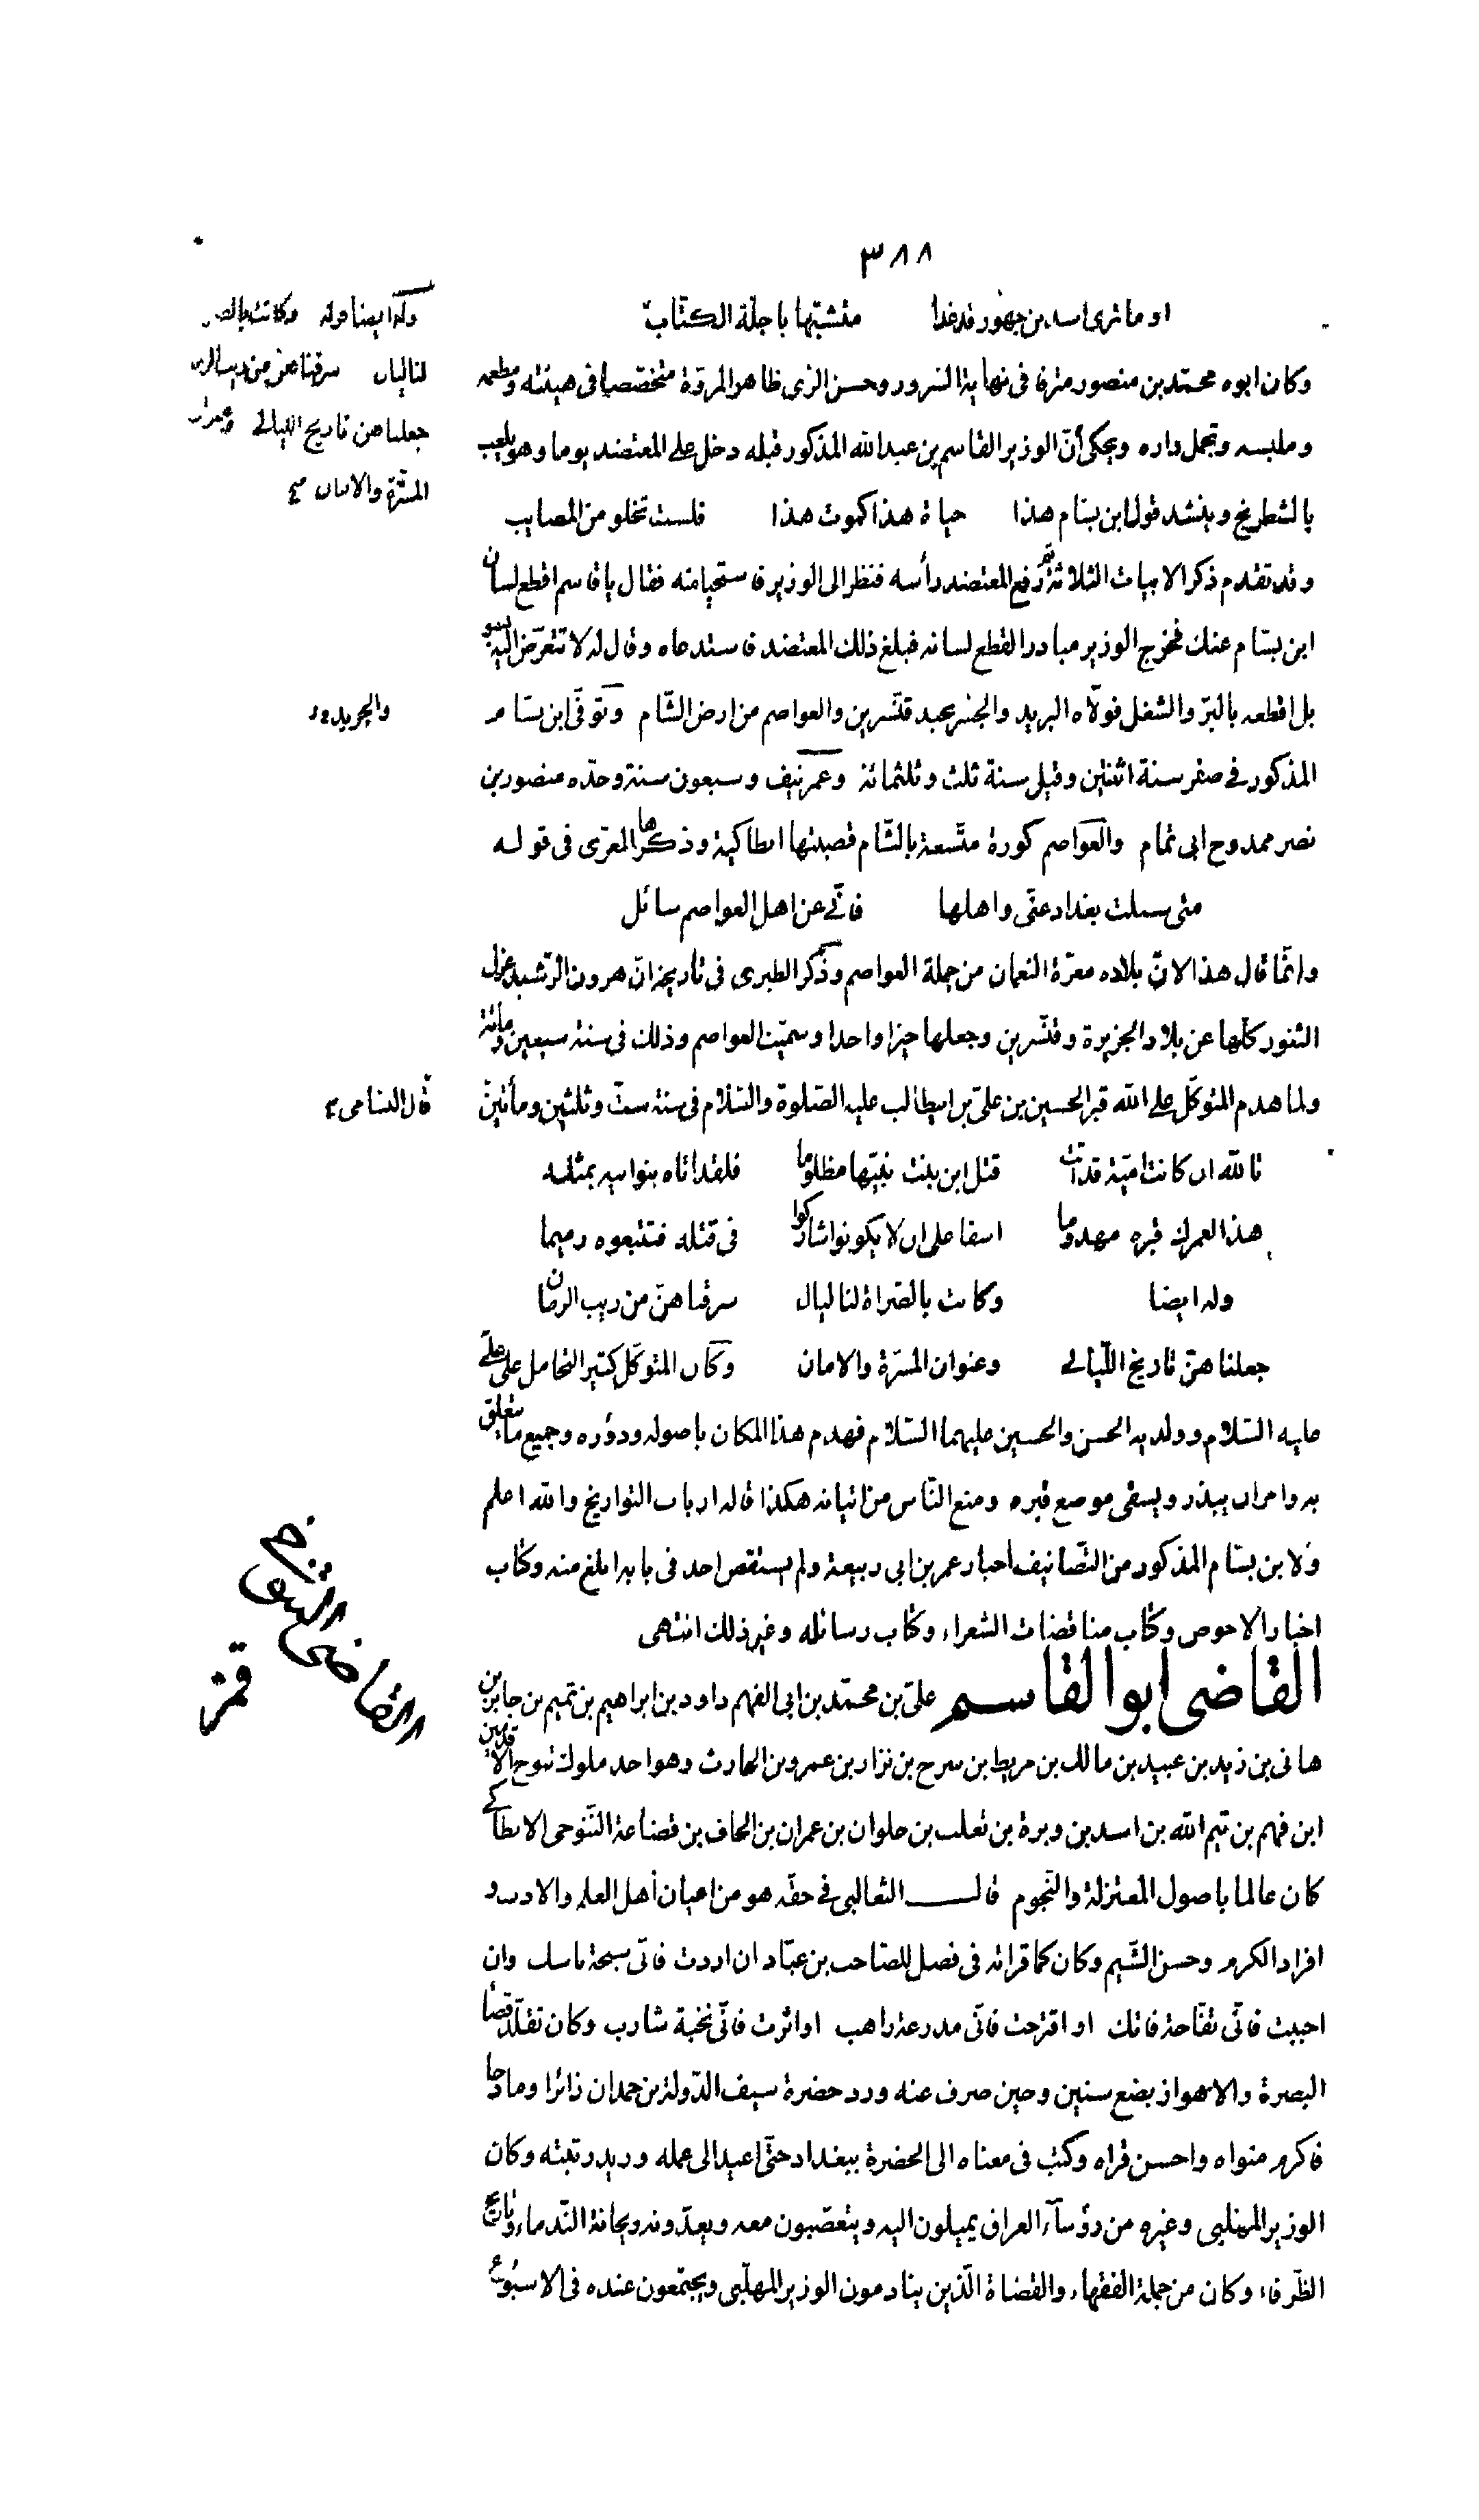 ٣٨٨
او ما ترى اسد بن جهور قد غدا متشبّها باجلّة الكتّاب
وكان ابوه محمّد بن منصور مترفا فى نهاية السّرور وحسن الزى ظاهر المروّة متخصّصا فى هيئته ومطعمه
وملبسه وتجمل داره ويحكى أنّ الوزير القاسم بن عبد الله المذكور قبله دخل على المعتضد يوما وهو يلعب
بالشطرنج وينشد قول ابن بسّام هذا حياة هذا كموت هذا فلست تخلو من المصايب
وقد تقدم ذكر الابيات الثلاثة ثم رفع المعتضد رأسه فنظر الى الوزير فاستحيا منه فقال يا قاسم اقطع لسان
ابن بسّام عنك فخرج الوزير مبادرا لقطع لسانه فبلغ ذلك المعتضد فاستدعاه وقال له لا تتعرّض اليه بسو
بل اقطعه بالبرّ والشغل فولّاه البريد والجسر بجند قنّسرين والعواصم من ارض الشّام وتوفّى ابن بسّام
المذكور فى صفر سنة اثنتين وقيل سنة ثلث وثلثمائة وعمر نيف وسبعون سنة وجدّه منصور بن
نصر ممدوح ابى تمام والعواصم كورة متّسعة بالشّام قصبتها انطاكية وذكرها المعرّى فى قوله
متى سالت بغداد عنّى واهلها فانّى عن اهل العواصم سائل
وانّما قال هذا لانّ بلاده معرّة النعمان من جملة العواصم وذكر الطبرى فى تاريخه انّ هرون الرّشيد عزل
الثغور كلّها عن بلاد الجزيرة وقنّسرين وجعلها حيزا واحدا وسمّيت العواصم وذلك فى سنة سبعين ومائة
ولما هدم المتوكّل على الله قبر الحسين بن علىّ بن ابيطالب عليه الصّلوة والسّلام فى سنة ستّ وثلثين ومأتين
تالله ان كانت اميّة قد اتت قتل ابن بنت نبيّها مظلوما فلقد اتاه بنو ابيه بمثله
هذا لعمرك قبره مهدوما اسفا على ان لا يكونوا شاركوا فى قتله فتتبعوه رميما
وله ايضا وكانت بالصّراة لنا ليال سرقناهنّ من ريب الزمان
جعلناهنّ تاريخ اللّيالى وعنوان المسرّة والامان وكان المتوكّل كثير التحامل على علىّ
عليه السّلام وولديه الحسن والحسين عليهما السّلام فهدم هذا المكان باصوله ودوره وجميع ما يتعلق
به وامر ان يبذر ويسقى موضع قبره ومنع النّاس من اتيانه هكذا قاله ارباب التواريخ والله اعلم
ولابن بسّام المذكور من التّصانيف اخبار عمر بن ابى ربيعة ولم يستقص احد فى بابه ابلغ منه وكتاب
اخبار الاحوص وكتاب مناقضات الشعراء وكتاب رسائله وغير ذلك انتهى
القاضى ابو القاسم علىّ بن محمّد بن ابى الفهم داود بن ابراهيم بن تميم بن جابر بن
هانى بن زيد بن عبيد بن مالك بن مريط بن سرح بن نزار بن عمرو بن الحارث وهو احد ملوك تنوخ الاقدمين
ابن فهم بن تيم الله بن اسد بن وبرة بن تغلب بن حلوان بن عمران بن الحاف بن قضاعة التّنوخى الانطاكى
كان عالما باصول المعتزلة والنّجوم قال الثعالبى فى حقّه هو من اعيان أهل العلم والادب و
افراد الكرم وحسن الشّيم وكان كما قراته فى فصل للصّاحب بن عبّاد ان اردت فانّى سبحة ناسك وان
احببت فانّى تفّاحة فاتك او اقترحت فانّى مدرعة راهب او اثرت فانّى نخبة شارب وكان تقلّد قضا
البصرة والاهواز بضع سنين وحين صرف عنه ورد حضرة سيف الدّولة بن حمدان زائرا ومادحا
فاكرم مثواه واحسن قراه وكتب فى معناه الى الحضرة ببغداد حتّى اعيد الى عمله وزيد رتبته وكان
الوزير المهلبى وغيره من رؤسآء العراق يميلون اليه ويتعصّبون معه ويعدّونه ريحانة النّدماء وتاريخ
الظّرفاء وكان من جملة الفقهاء والقضاة الّذين ينادمون الوزير المهلّبى ويجتمعون عنده فى الاسبوع
وله ايضا قوله وكانت بالصر
لنا ليال سرقناهن من ريب الز
جعلناهن تاريخ الليالى وعنوان
المسرّة والامان صح
قال البسامى
القاضى التنوخى